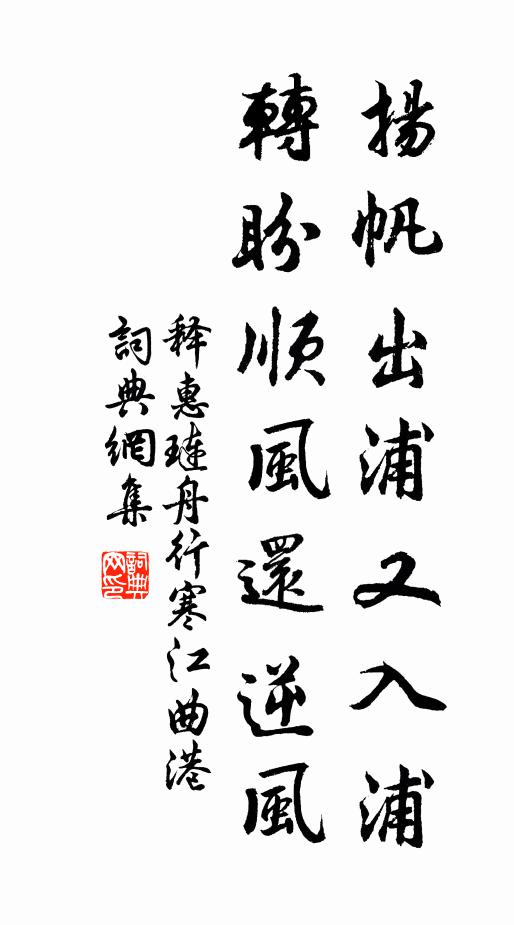 揚帆出浦又入浦
轉盼順風還逆風
释惠璉舟行寒江曲港
詞典網集
詞典
网印